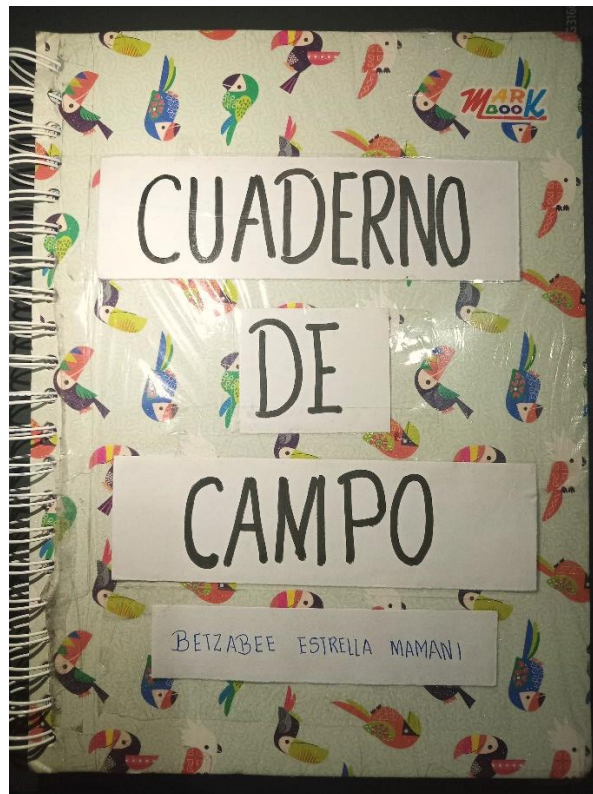 MARK
BOOK
CUADERNO
DE
CAMPO
BETZABEE ESTRELLA MAMANI